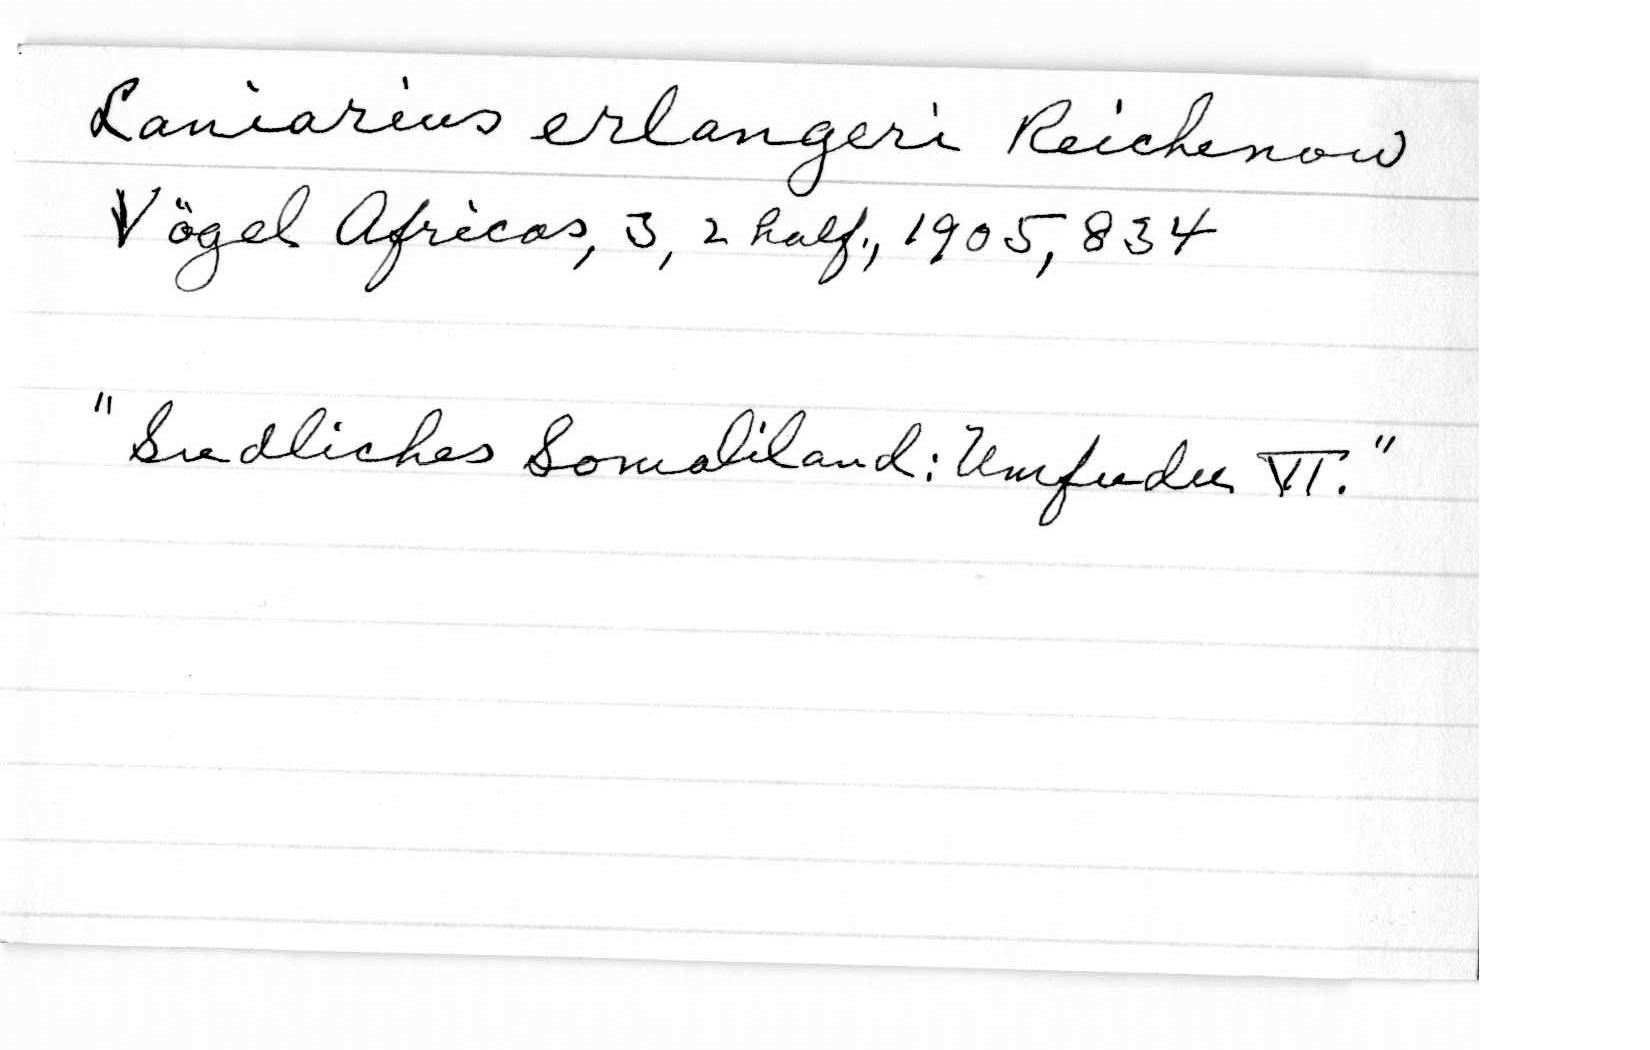 Laniarius erlangeri Reichenow
Vögel Africas, 3, 2 half., 1905, 834
"Suedliches Somaliland: Umfudu VI."